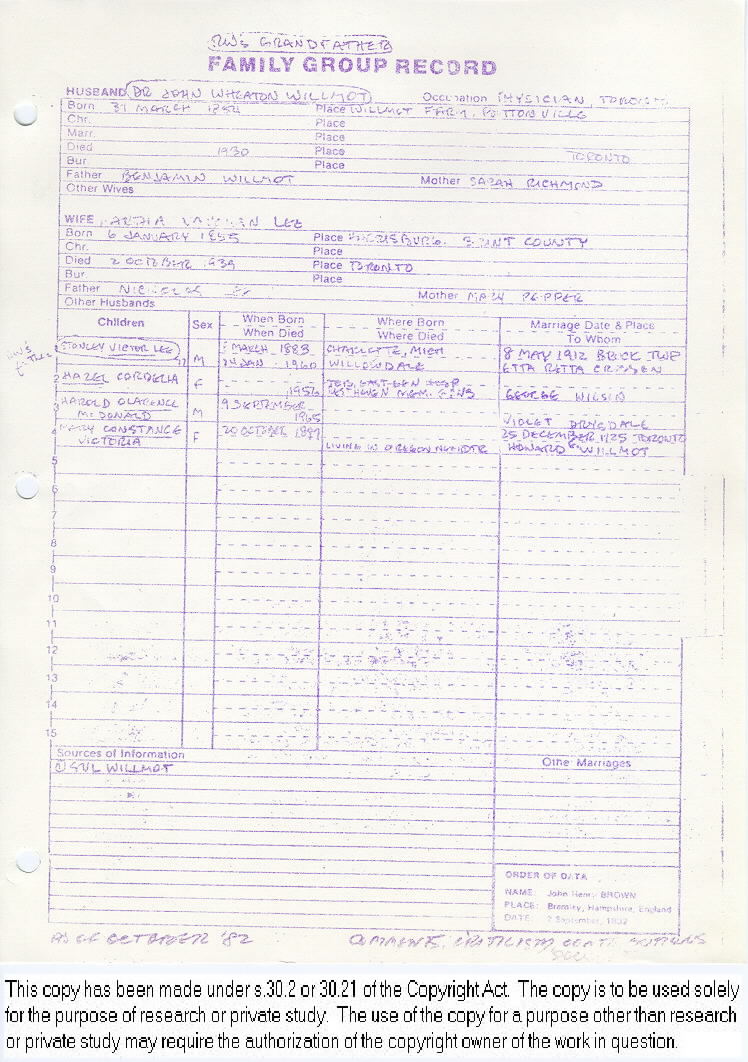 RW'S GRANDFATHER
FAMILY GROUP RECORD
HUSBAND DR JOHN WHEATON WILLMOT Occupation PHYSICIAN, TORONTO
Born 31 MARCH Place WILLMOT FARM,
Chr. Place
Marr. Place
Died 1930 Place TORONTO
Bur. Place
Father BENJAMIN WILLMOT Mother SARAH RICHMOND
Other Wives
WIFE LEE
Born 6 JANUARY 1855 Place COUNTY
Chr. Place
Died 2 OCTOBER 1939 Place TORONTO
Bur. Place
Father Mother MARY PEPPER
Other Husbands
Children Sex When Born Where Born Marriage Date & Place
When Died Where Died To Whom
RW'S
STANLEY VICTOR LEE MARCH 1883 CHARLOTTE, MICH 8 MAY 1912 BRICK TWP
M 24 JAN 1960 WILLOWDALE ETTA RETTA
2 HAZEL CORDELIA F
1956 GEORGE WILSON
3 HAROLD CLARENCE 9 SEPTEMBER
McDONALD M 1965 VIOLET DRYSDALE
4 MARY CONSTANCE 20 OCTOBER 25 DECEMBER 1925 TORONTO
VICTORIA F LIVING IN HOWARD WILLMOT
5
6
7
8
9
10
11
12
13
14
15
Sources of Information Other Marriages
① SVL WILLMOT
ORDER OF DATA
NAME: John Henry BROWN
PLACE: Bramley, Hampshire, England
DATE: 2 September,
AS OF OCTOBER '82 COMMENTS,
This copy has been made under s.30.2 or 30.21 of the Copyright Act. The copy is to be used solely
for the purpose of research or private study. The use of the copy for a purpose other than research
or private study may require the authorization of the copyright owner of the work in question.